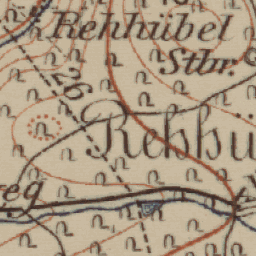 Rehhübel
Stbr.
26
Rehhü
eg